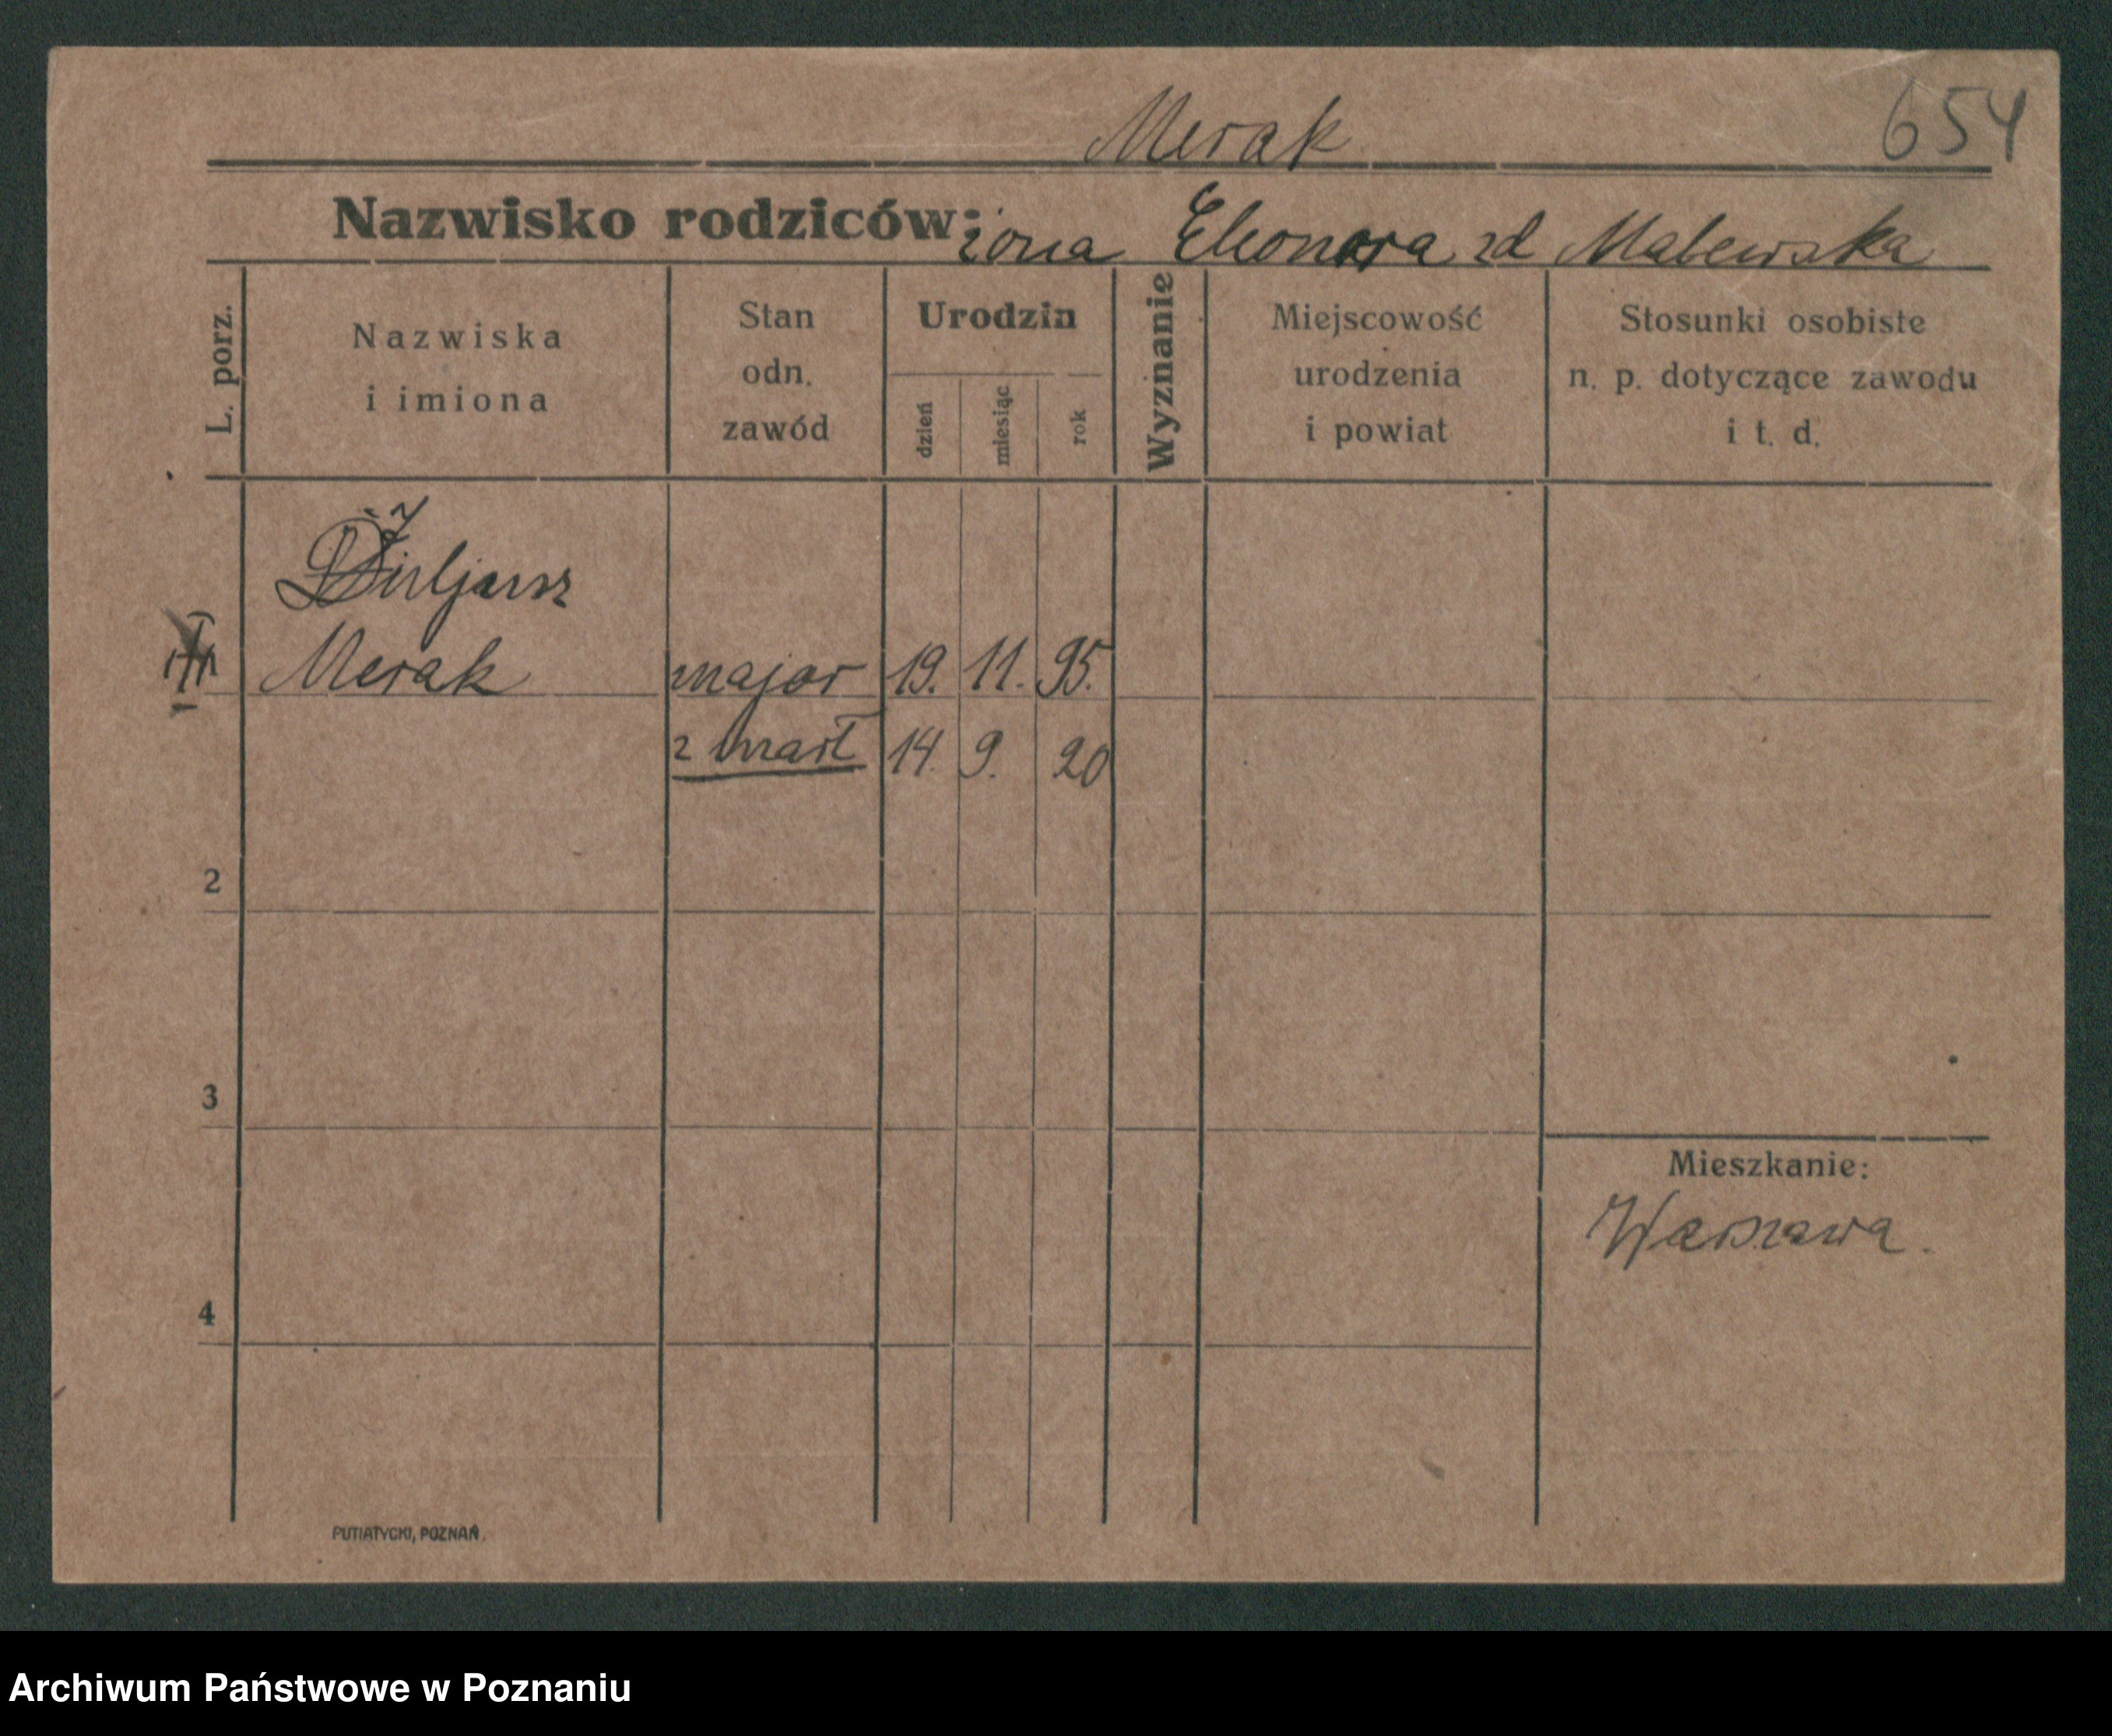 Merak
654
Nazwisko rodziców: żona Eleonora zd Malewska
L. porz.
Nazwiska
i imiona
Stan
odn.
zawód
Urodzin
dzień
miesiąc
rok
Wyznanie
Miejscowość
urodzenia
i powiat
Stosunki osobiste
n. p. dotyczące zawodu
i t. d.
Merak major 19. 11. 95.
zmarł 14. 9. 20
2
3
Mieszkanie:
Warszawa.
4
PUTIATYCKI, POZNAŃ.
Archiwum Państwowe w Poznaniu